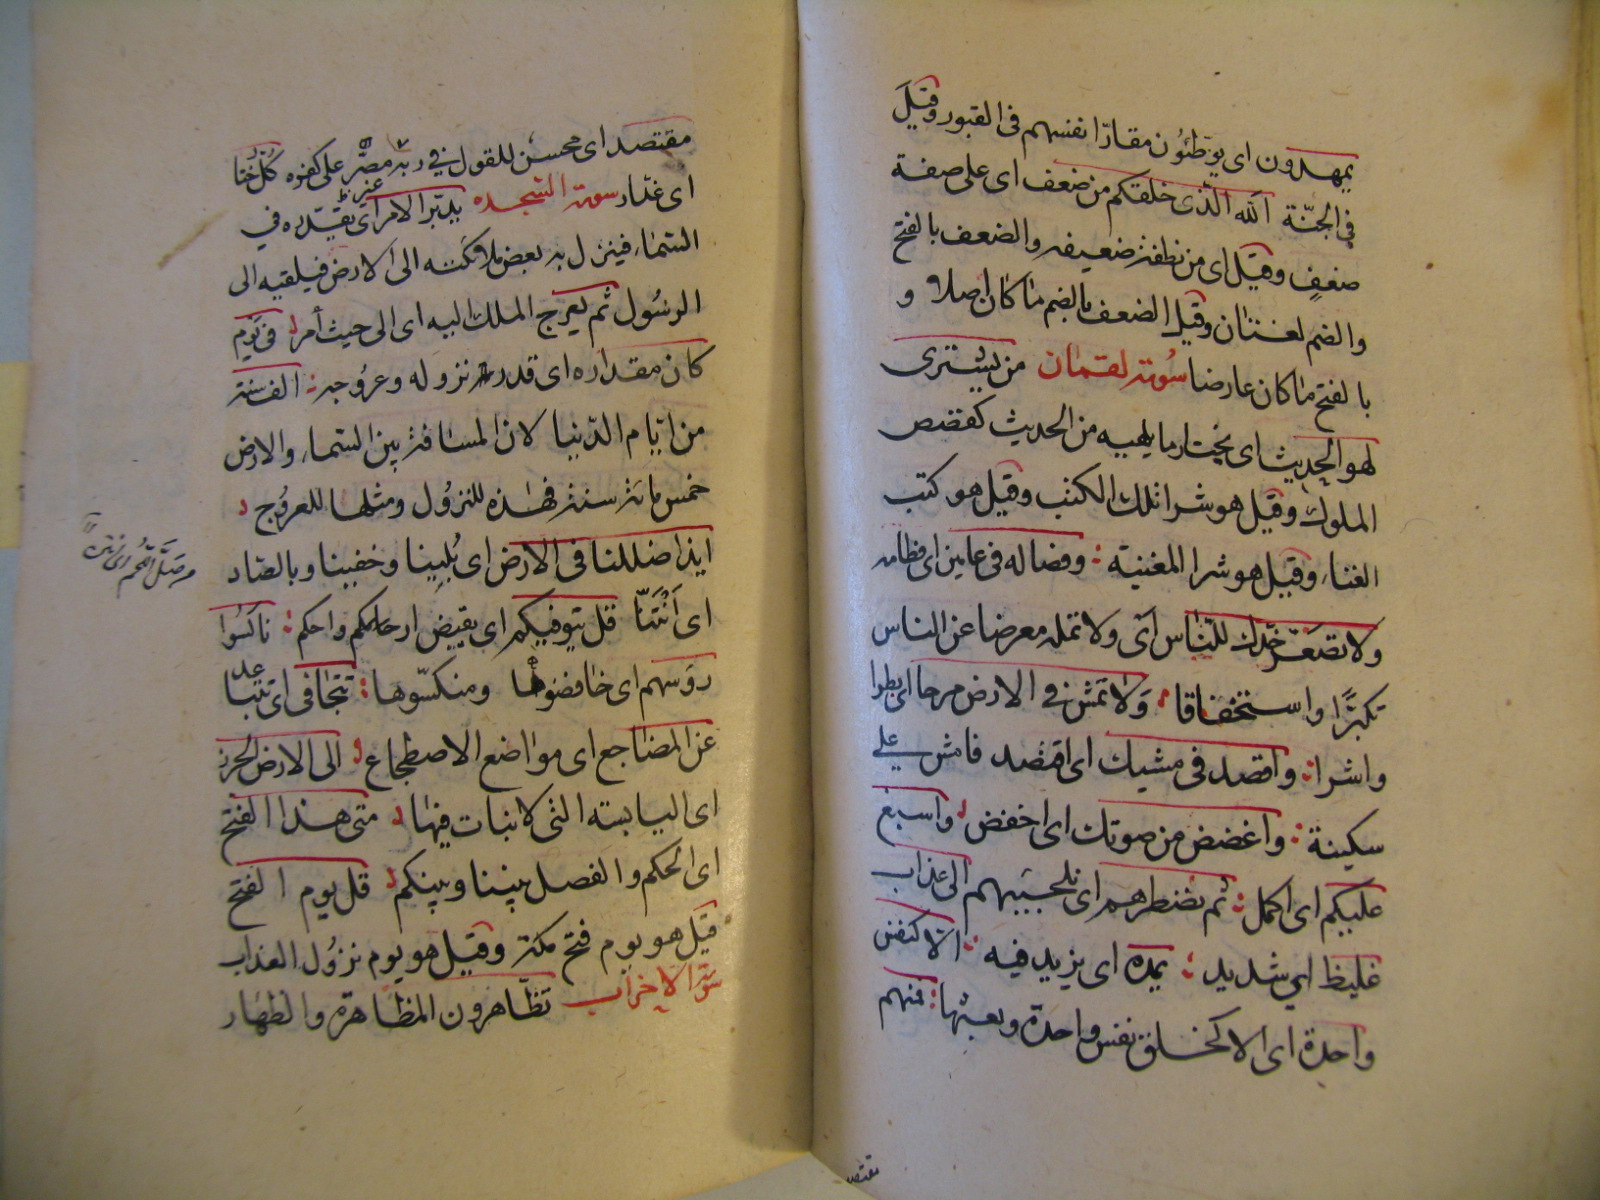 يمهدون اى يوطئون مقارّ انفسهم فى القبور وقيل
فى الجنّة الله الّذى خلقكم من ضعف اى على صفة
ضعفٍ وقيل اى من نطفة ضعيفه والضعف بالفتح
والضم لغتان وقيل الضعف بالضم ما كان اصلا و
بالفتح ما كان عارضا سورة لقمان من يشترى
لهو الحديث اى يختار ما يلهيه من الحديث كقصص
الملوك وقيل هو شرا تلك الكتب وقيل هو كتب
الغناء وقيل هو شرا المغنية وفصاله فى عامين اى فطامه
ولا تصعّر خدّك للنّاس اى ولا تمله معرضا عن الناس
تكبرًا واستخفافا ولا تمش فى الارض مرحا اى بطرا
واشرا واقصد فى مشيك اى اقتصد فامش على
سكينة واغضض من صوتك اى اخفض واسبغ
عليكم اى اكمل ثم نضطرهم اى نلجئهم الى عذاب
غليظ اى شديد يمده اى يزيد فيه الّا كنفس
واحدة اى الا كخلق نفس واحدة وبعثها فمنهم
مقتصد
مقتصد اى محسن للقول فى ربه مصّر على كفره كلّ ختّا
اى غدّار سورة السّجده يدبّر الامر اى يقدّره فى
السّماء فينزل به بعض ملائكته الى الارض فيلقيه الى
الرسُول ثم يعرج الملك اليه اى الى حيث أمر فى يَوم
كان مقداره اى قدر نزوله وعروجه الف سنة
من ايّام الدّنيا لان المسافة بين السّماء والارض
خمس مائة سنة فهذه للنزُول ومثلها للعروُج
ايذا ضللنا فى الارض اى بُلينا وخفينا وبالصّاد
من صلّ اللّحم اى نتن
اى اَنْتَنّا قل يتوفيكم اى يقبض ارحامكم واحكم ناكسُوا
رؤسهم اى خافضوها ومنكسّوها تتجافى اى تتباعد
عن المضاجع اى مواضع الاضطجاع الى الارض الجرز
اى اليابسة الّتى لا نبات فيها متى هذا الفتح
اى الحكم والفصل بيننا وبينكم قل يوم الفتح
قيل هو يوم فتح مكة وقيل هو يوم نزُول العذاب
سورة الاحزاب تظّاهرون المظاهرة والظهار